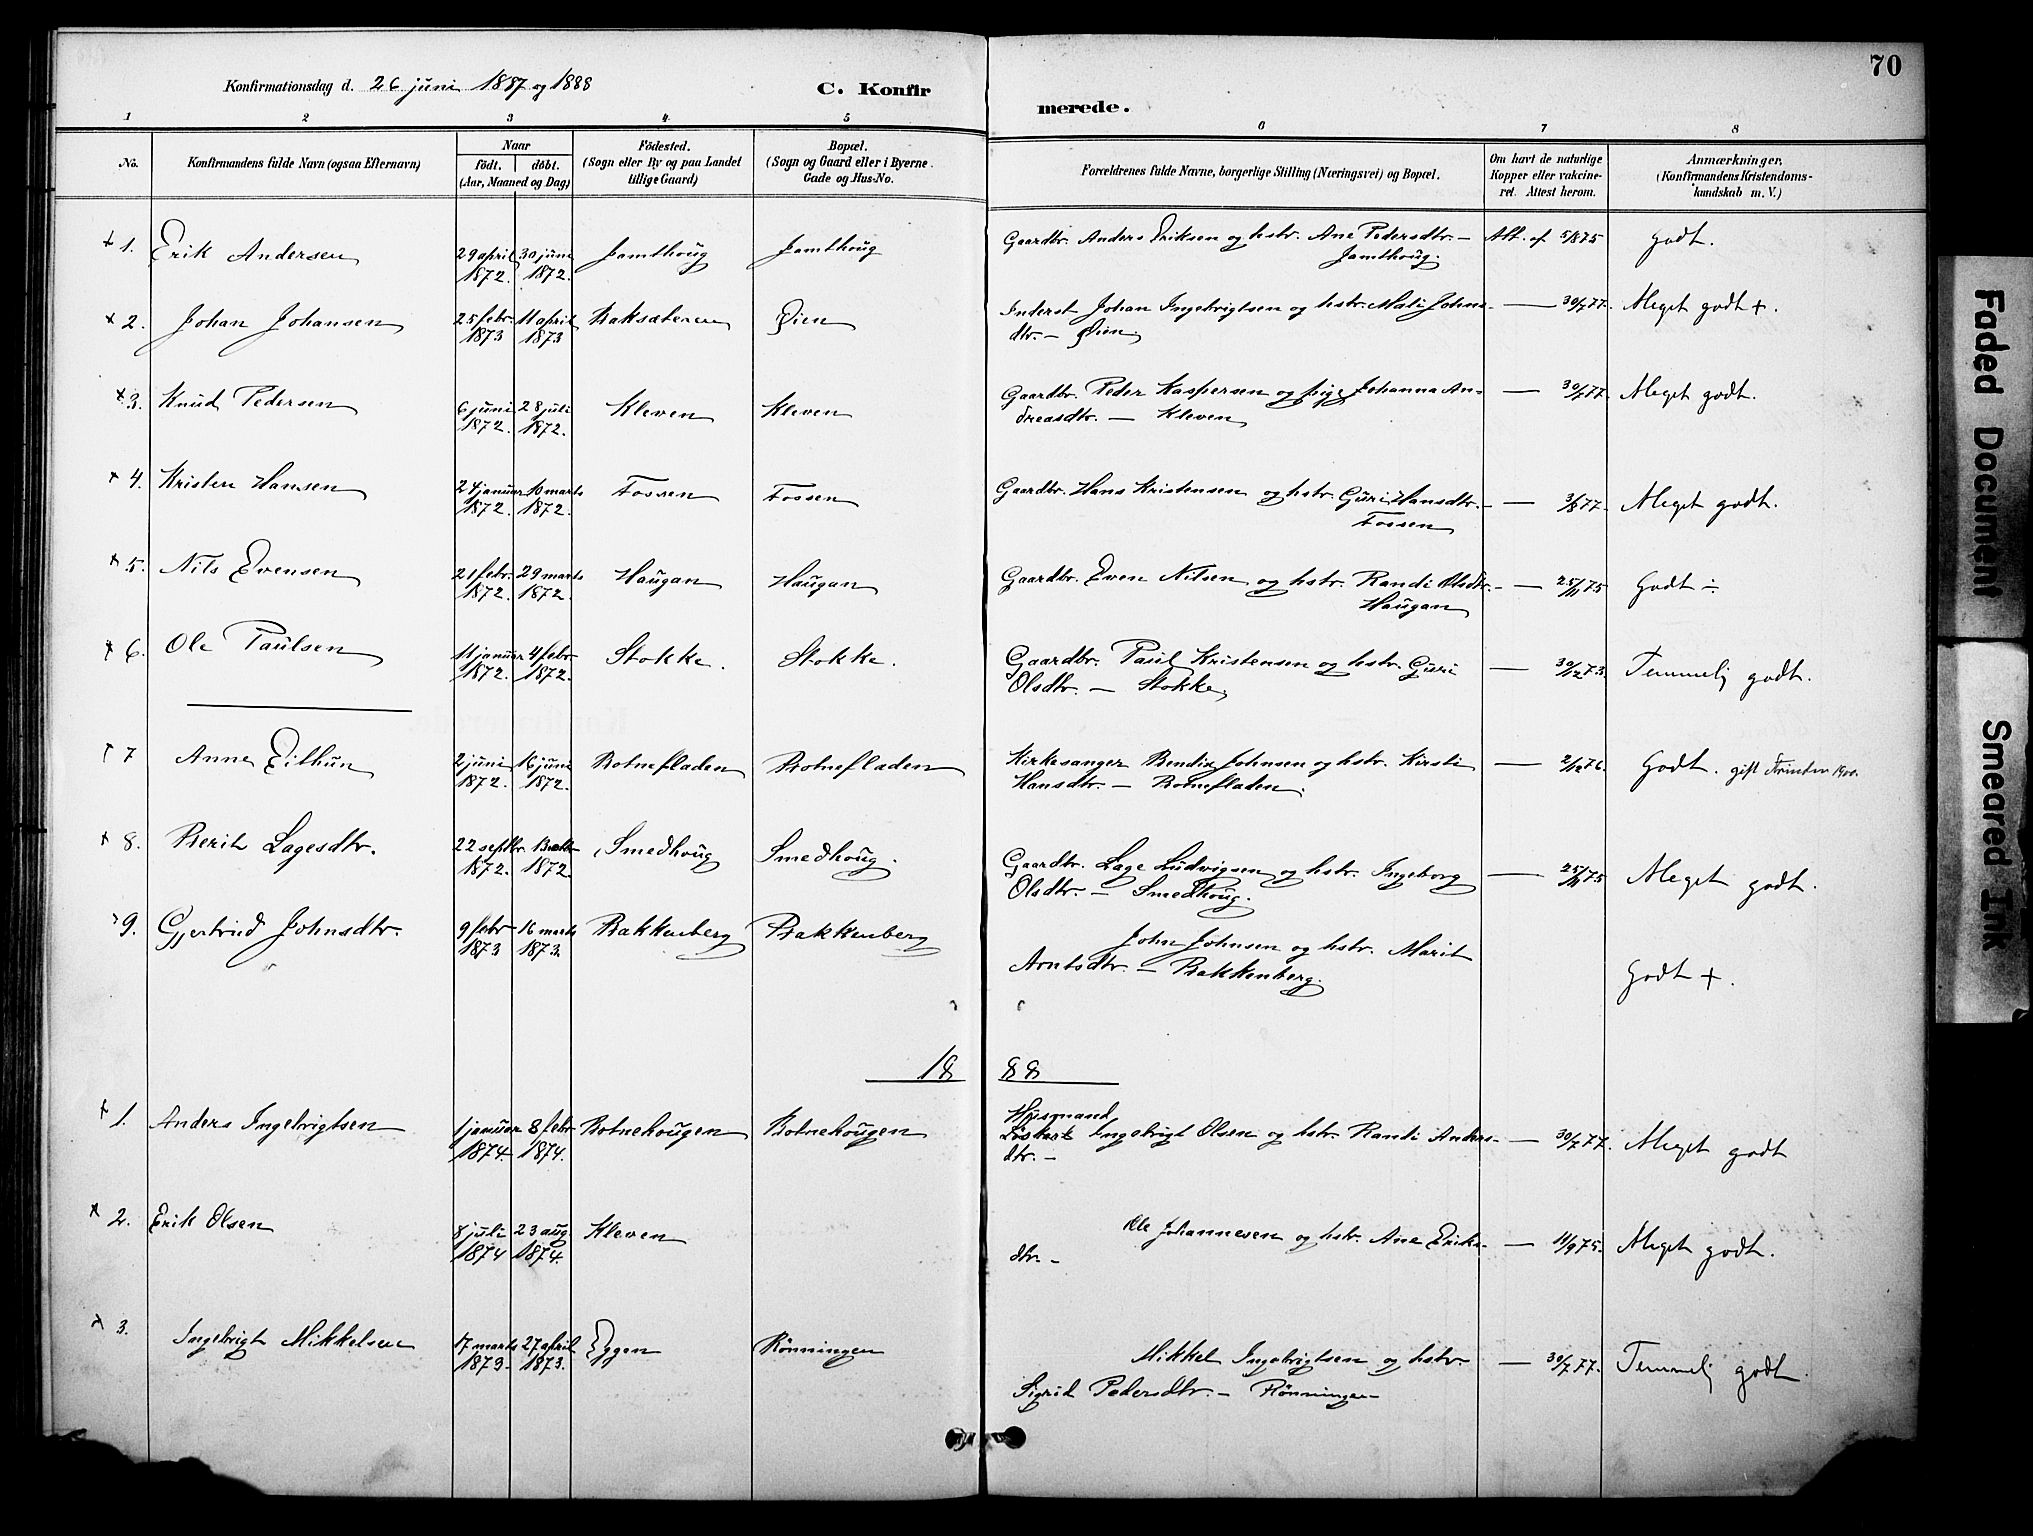 70
Konfirmationsdag d. 26 juni 1887 og 1888
C. Konfir
merede.
1 2 3 4 5 6 7 8
No.
Konfirmandens fulde Navn (ogsaa Efternavn)
Naar
födt. döbt.
(Aar, Maaned og Dag)
Födested.
(Sogn eller By og paa Landet
tillige Gaard)
Bopæl.
(Sogn og Gaard eller i Byerne
Gade og Hus-No.
Forældrenes fulde Navne, borgerlige Stilling (Næringsvei) og Bopæl.
Om havt de naturlige
Kopper eller vakcine-
ret. Attest herom.
Anmærkninger,
(Konfirmandens Kristendoms-
kundskab m. V.)
+ 1. Erik Andersen 29 april 30 juni Jamthoug Jamthoug Gaardbr. Anders Eriksen og hstr. Ane Pedersdtr. – Att. af 5/8 75 Godt.
1872. 1872. Jamthoug.
+ 2. Johan Johansen 25 febr. 11 april Baksæteren Øien Inderst Johan Ingebrigtsen og hstr. Mali Johns- — 30/7 77. Meget godt +.
1873 1873 dtr. – Øien
+ 3. Knud Pedersen 6 juni 28 juli Kleven Kleven Gaardbr. Peder Kaspersen og pige Johanna An- — 30/7 77. Meget godt.
1872. 1872. dreasdtr. — Kleven
+ 4. Kristen Hansen 24 januar 10 marts Fossen Fossen Gaardbr. Hans Kristensen og hstr. Guri Hansdtr. – — 3/8 77. Meget godt.
1872. 1872. Fossen
+ 5. Nils Evensen 21 febr. 29 marts Haugan Haugan Gaardbr. Even Nilsen og hstr. Randi Olsdtr. – — 25/11 75 Godt ÷
1872. 1872. Haugan
+ 6. Ole Paulsen 11 januar 4 febr Stokke. Stokke. Gaardbr. Paul Kristensen og hstr. Guri — 30/12 73. Temmeli godt.
1872. 1872. Olsdtr. — Stokke
+ 7 Anne Eithun 2 juni 16 juni Botnefladen Botnefladen Kirkesanger Bendix Johnsen og hstr. Kirsti — 2/12 76. Godt. gift
1872. 1872. Hansdtr. — Botnefladen.
+ 8. Berit Lagesdtr. 22 septbr. Smedhoug Smedhoug. Gaardbr. Lage Ludvigsen og hstr. Ingeborg — 25/11 75 Meget godt.
1872. 1872. Olsdtr. — Smedhoug.
9. Gjertrud Johnsdtr. 9 febr 16 marts Bakkenberg Bakkenberg John Johnsen og hstr. Marit
1873 1873. Arntsdtr. – Bakkenberg. Godt +.
1888
+ 1. Anders Ingebrigtsen 1 januar 8 febr Botnehougen Botnehougen Husmand
Ingebrigt Olsen og hstr. Randi Anders- — 30/7 77. Meget godt
1874. 1874. dtr. –
+ 2. Erik Olsen 8 juli 23 aug Kleven Ole Johannesen og hstr. Ane Eriks- — 11/9 75. Meget godt.
1874 1874. dtr. –
+ 3. Ingebrigt Mikkelsen 17 marts 27 april Eggen Rönningen Mikkel Ingebrigtsen og hstr. — 30/7 77. Temmeli godt.
1873. 1873. Sigrid Pedersdtr. – Rönningen
Faded Document
Smeared Ink